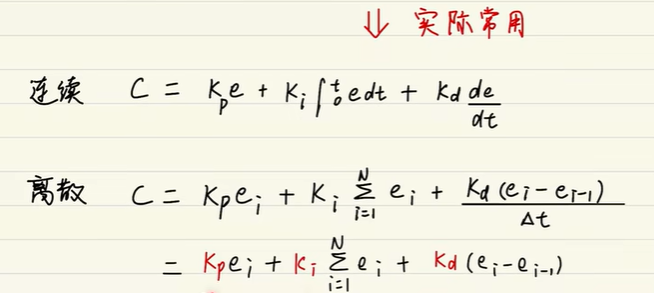 ⇓ 实际常用
连续 C = Kpe + Ki∫₀ᵗedt + Kd de/dt
离散 C = Kpeᵢ + Kᵢ Σᵢ₌₁ᴺ eᵢ + Kd(eᵢ-eᵢ₋₁)/Δt
= Kpeᵢ + Kᵢ Σᵢ₌₁ᴺ eᵢ + Kd(eᵢ-eᵢ₋₁)